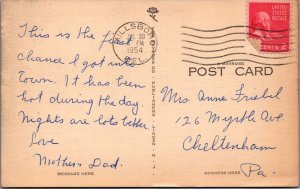 This is the first
chance I got into
town. It has been
hot during the day.
Nights are lots better.
Love
Mother & Dad.
MESSAGE HERE
JUL 30
PM
1954
DEL.
UNITED STATES
POSTAGE
CENTS 2
A MAYROSE
POST CARD
Mrs. Anne Friebel
126 Myrtle Ave
Cheltenham
Pa.
ADDRESS HERE